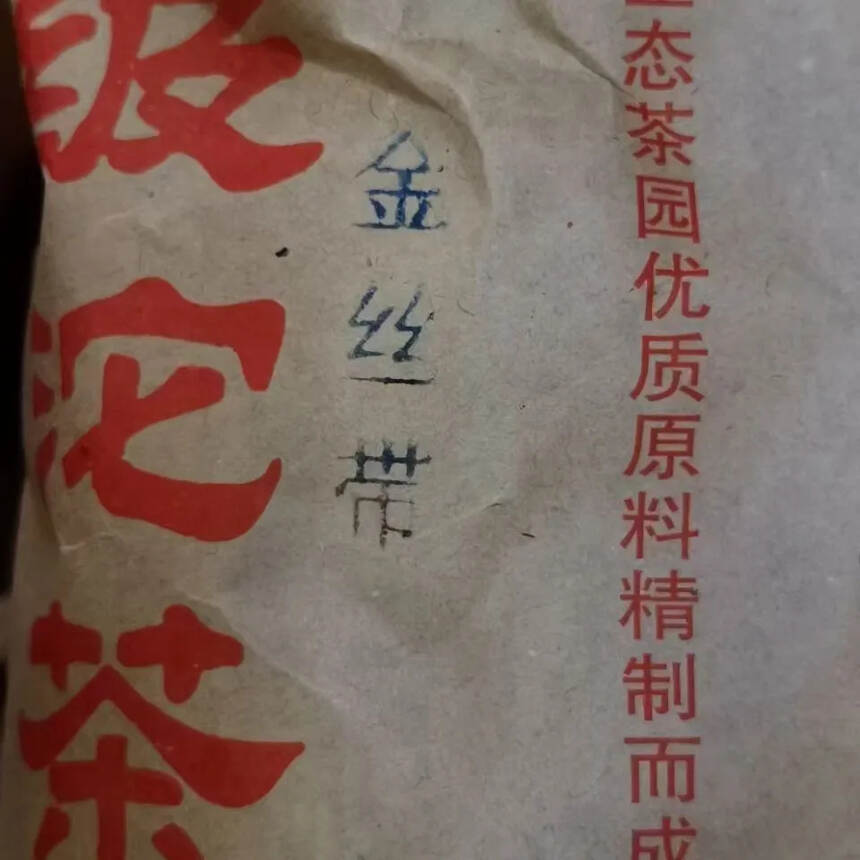 级沱茶
金丝带
态茶园优质原料精制而成